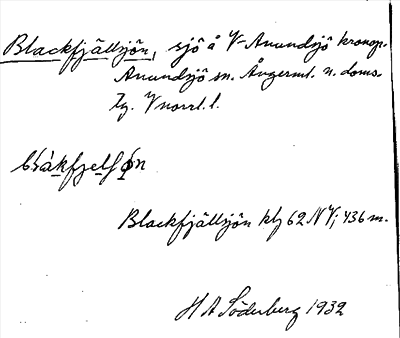 Blackfjällsjön, sjö å V-Anundsjö kronop.
Anundsjö sn. Ångerml. n. doms.
Zg. Vnorrl. l.
Blackfjällsjön kbj 62 NV; 436 m.
H A Söderberg 1932